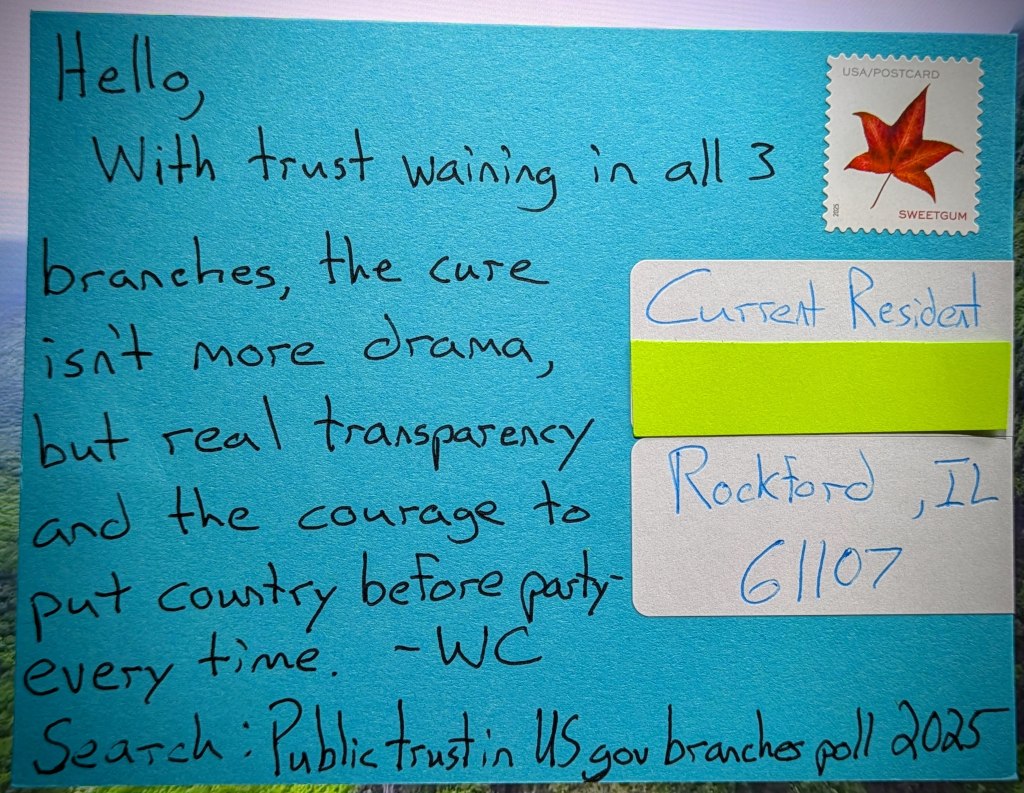 Hello,
With trust waining in all 3
branches, the cure
isn't more drama,
but real transparency
and the courage to
put country before party-
every time. -WC
Search: Public trust in US gov branches poll 2025
USA/POSTCARD
2025
SWEETGUM
Current Resident
Rockford, IL
61107